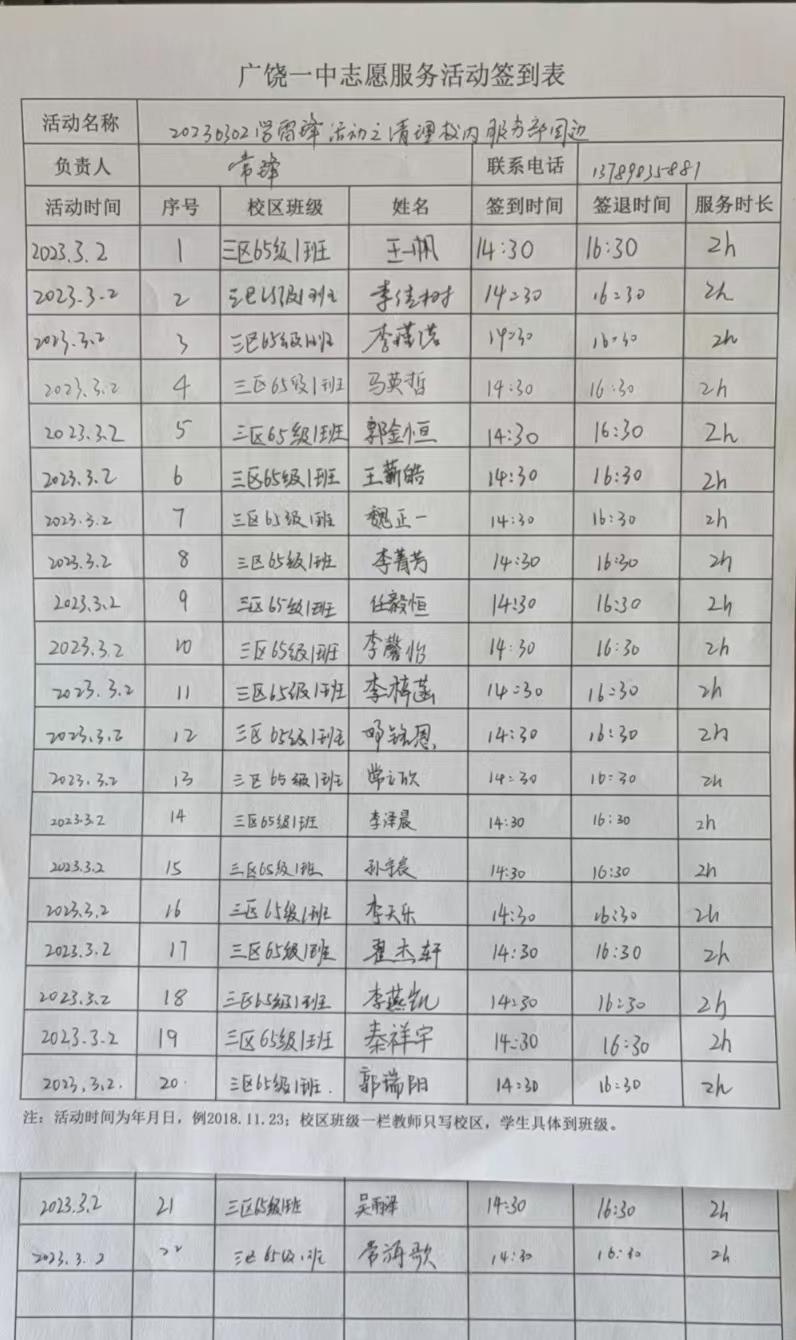 广饶一中志愿服务活动签到表
活动名称 20230302学雷锋活动之清理校内服务部周边
负责人 常锋 联系电话 13789835881
活动时间 序号 校区班级 姓名 签到时间 签退时间 服务时长
2023.3.2 1 三区65级1班 王一帆 14:30 16:30 2h
2023.3.2 2 三区65级1班 李佳树 14:30 16:30 2h
2023.3.2 3 三区65级1班 14:30 16:30 2h
2023.3.2 4 三区65级1班 马英哲 14:30 16:30 2h
2023.3.2 5 三区65级1班 郭金恒 14:30 16:30 2h
2023.3.2 6 三区65级1班 王薪皓 14:30 16:30 2h
2023.3.2 7 三区65级1班 魏正一 14:30 16:30 2h
2023.3.2 8 三区65级1班 李菁芳 14:30 16:30 2h
2023.3.2 9 三区65级1班 任毅恒 14:30 16:30 2h
2023.3.2 10 三区65级1班 李馨怡 14:30 16:30 2h
2023.3.2 11 三区65级1班 李梓菡 14:30 16:30 2h
2023.3.2 12 三区65级1班 14:30 16:30 2h
2023.3.2 13 三区65级1班 14:30 16:30 2h
2023.3.2 14 三区65级1班 李泽晨 14:30 16:30 2h
2023.3.2 15 三区65级1班 孙宇晨 14:30 16:30 2h
2023.3.2 16 三区65级1班 李天乐 14:30 16:30 2h
2023.3.2 17 三区65级1班 翟杰轩 14:30 16:30 2h
2023.3.2 18 三区65级1班 李燕凯 14:30 16:30 2h
2023.3.2 19 三区65级1班 秦祥宇 14:30 16:30 2h
2023.3.2. 20. 三区65级1班. 郭瑞阳 14:30 16:30 2h
注：活动时间为年月日，例2018.11.23；校区班级一栏教师只写校区，学生具体到班级。
2023.3.2 21 三区65级1班 吴雨泽 14:30 16:30 2h
2023.3.2 22 三区65级1班 常海歌 14:30 16:30 2h